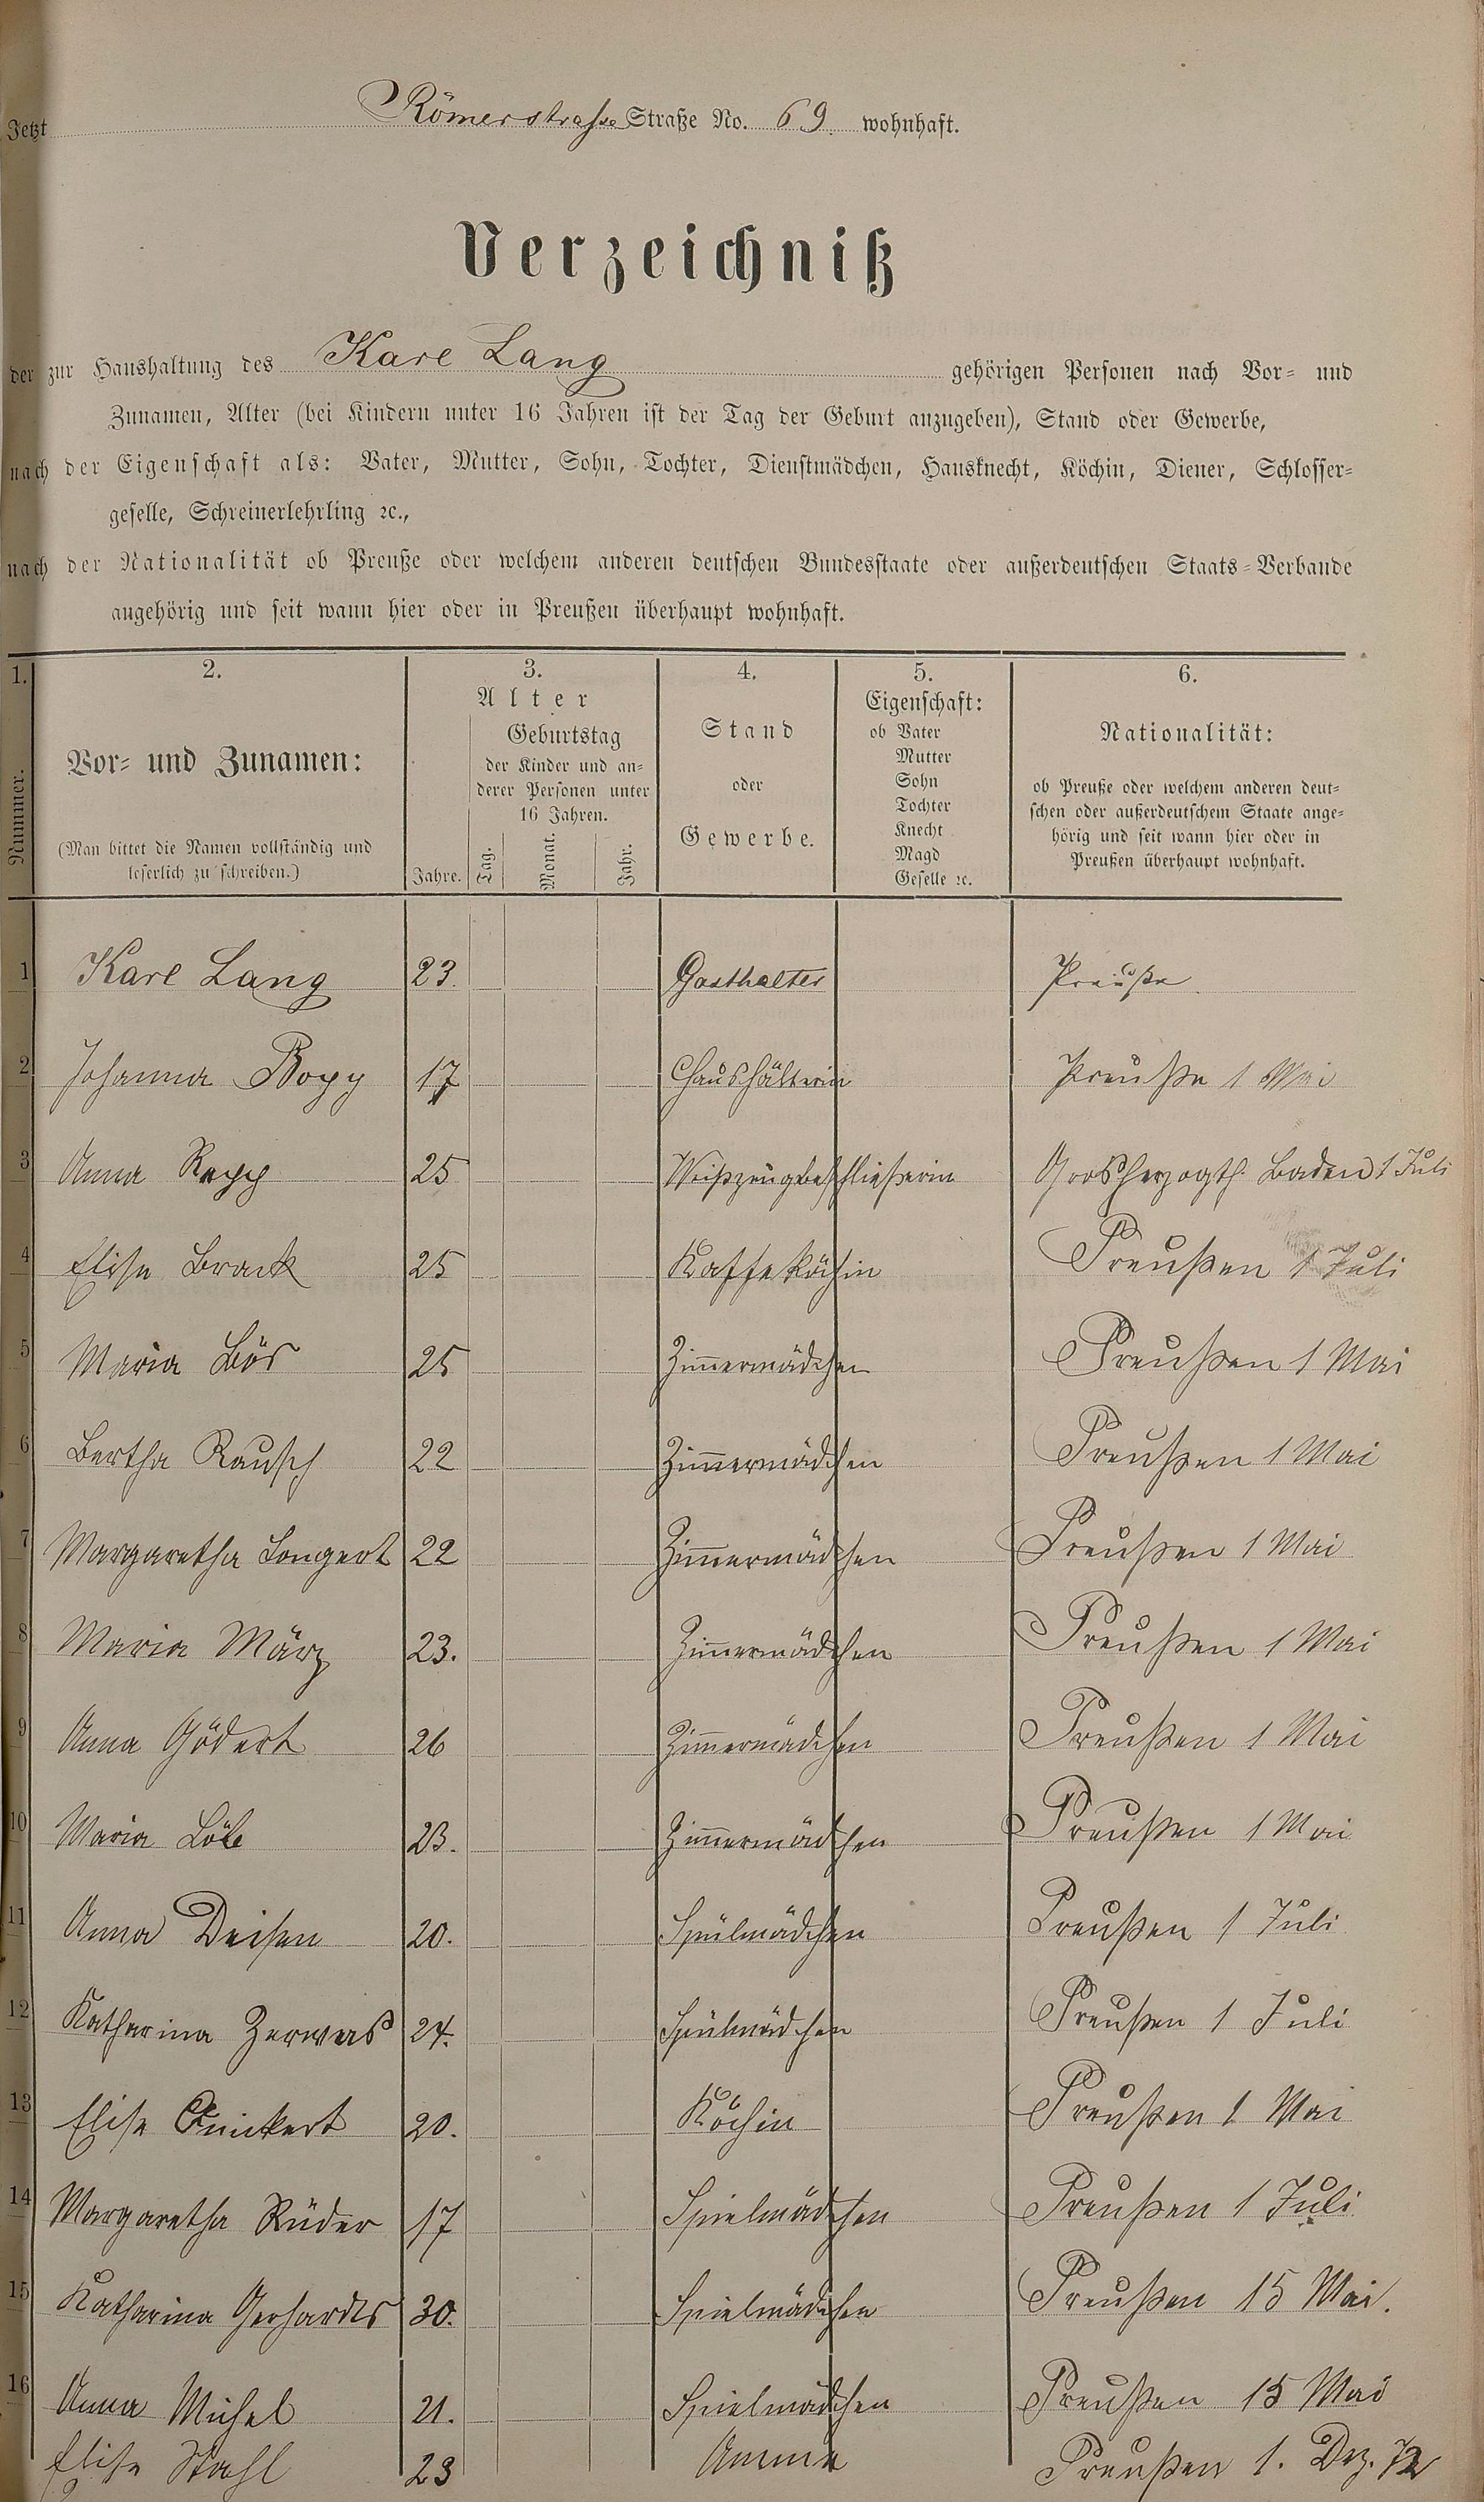 Jetzt Römerstrasse Straße No. 69. wohnhaft.
Verzeichniß
der zur Haushaltung des Karl Lang gehörigen Personen nach Vor- und
Zunamen, Alter (bei Kindern unter 16 Jahren ist der Tag der Geburt anzugeben), Stand oder Gewerbe,
nach der Eigenschaft als: Vater, Mutter, Sohn, Tochter, Dienstmädchen, Hausknecht, Köchin, Diener, Schlosser-
geselle, Schreinerlehrling ꝛc.,
nach der Nationalität ob Preuße oder welchem anderen deutschen Bundesstaate oder außerdeutschen Staats-Verbande
angehörig und seit wann hier oder in Preußen überhaupt wohnhaft.
1. 2. 3. 4. 5. 6.
Nummer.
Vor- und Zunamen:
(Man bittet die Namen vollständig und
leserlich zu schreiben.)
Alter
Jahre.
Geburtstag
der Kinder und an-
derer Personen unter
16 Jahren.
Tag. Monat. Jahr.
Stand
oder
Gewerbe.
Eigenschaft:
ob Vater
Mutter
Sohn
Tochter
Knecht
Magd
Geselle ꝛc.
Nationalität:
ob Preuße oder welchem anderen deut-
schen oder außerdeutschem Staate ange-
hörig und seit wann hier oder in
Preußen überhaupt wohnhaft.
1 Karl Lang 23. Gasthalter Preuße.
2 Johanna Bopp 17 Haushälterin Preuße 1 Mai
3 Anna Repp 25 Weißzeugbeschließerin Grosherzogth. Baden 1 Juli
4 Elise Brack 25 Kaffeköchin Preußen 1 Juli
5 Maria Bös 25 Zimmermädchen Preußen 1 Mai
6 Bertha Rausch 22 Zimmermädchen Preußen 1 Mai
7 Margaretha Longert 22 Zimmermädchen Preußen 1 Mai
8 Maria März 23. Zimmermädchen Preußen 1 Mai
9 Anna Gödert 26 Zimmermädchen Preußen 1 Mai
10 Maria Löb 23. Zimmermädchen Preußen 1 Mai
11 Anna Deisen 20. Spülmädchen Preußen 1 Juli
12 Katharina Zerwas 24. Spülmädchen Preußen 1 Juli
13 Elise 20. Köchin Preußen 1 Mai
14 Margaretha Rüder 17 Spielmädchen Preußen 1 Juli
15 Katharina Gerhardts 30. Spielmädchen Preußen 15 Mai.
16 Anna Michel 21. Spielmädchen Preußen 15 Mai
Elise Stahl 23 Amme Preußen 1. Dez. 72